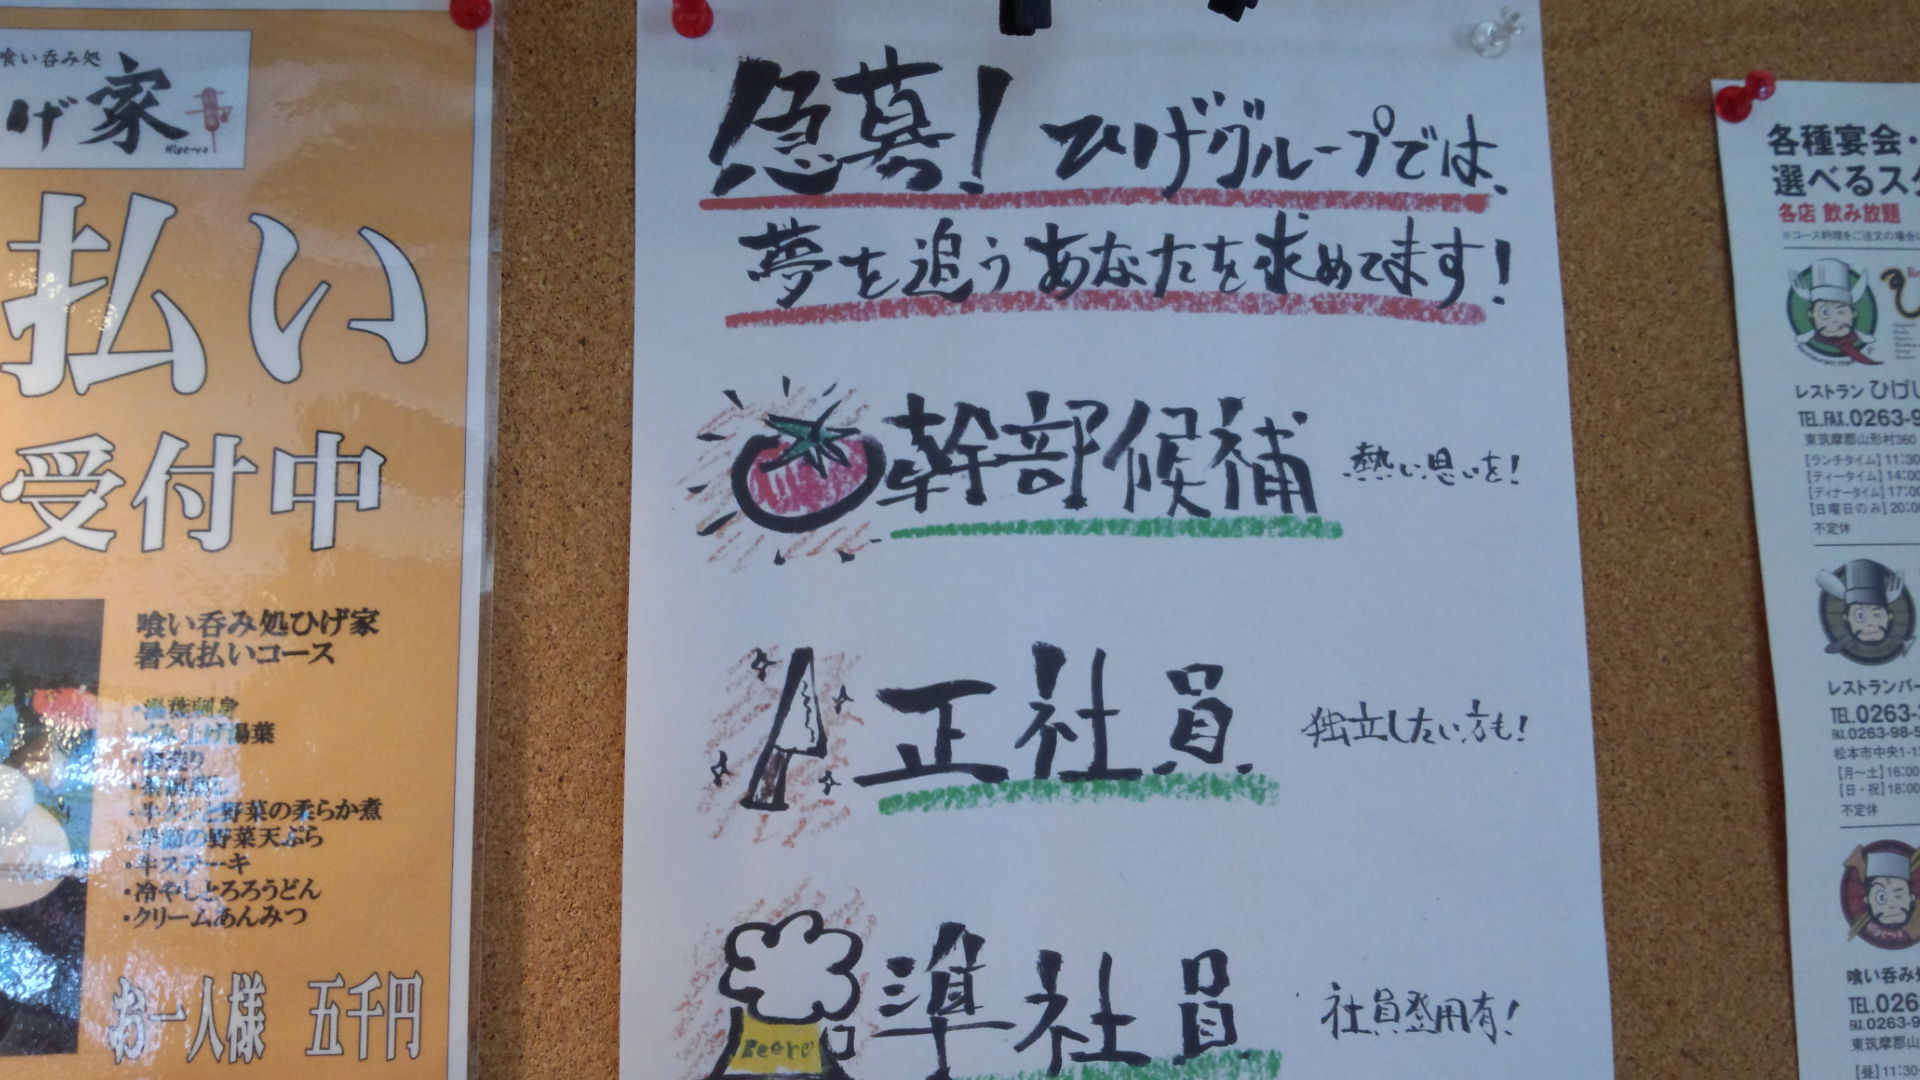 喰い呑み処
げ家
Hige-ya
払い
受付中
喰い呑み処ひげ家
暑気払いコース
・湯葉刺身
げ湯葉
・牛タンと野菜の柔らか煮
・季節の野菜天ぷら
・牛ステーキ
・冷やしとろろうどん
・クリームあんみつ
お一人様 五千円
急募! ひげグループでは、
夢を追うあなたを求めてます!
幹部候補 熱い思いを!
正社員 独立したい方も!
準社員 社員登用有!
Beere
各種宴会・
選べるスタ
各店 飲み放題
※コース料理をご注文の場合
レストラン ひげし
TEL.FAX.0263-9
東筑摩郡山形村360
[ランチタイム] 11:30
[ティータイム] 14:00
[ディナータイム] 17:00
[日曜日のみ] 20:00
不定休
レストランバー
TEL.0263-
FAX.0263-98-5
松本市中央1-1
[月〜土] 18:00
[日・祝] 18:00
不定休
Hige-ya
喰い呑み処
TEL.026
FAX.0263-9
東筑摩郡山
[昼] 11:30